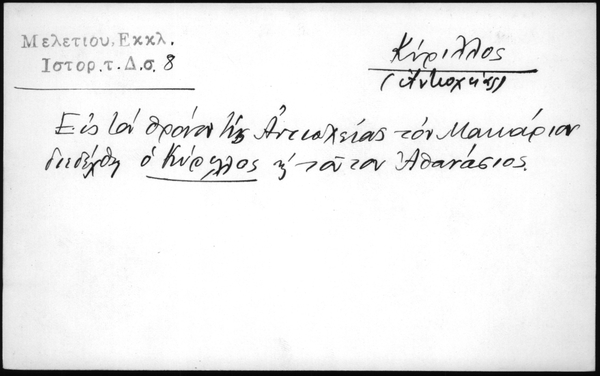 Μελετίου, Εκκλ.
Ιστορ. τ. Δ. σ. 8
Κύριλλος
(Ἀντιοχείας)
Εἰς τὸν θρόνον τῆς Ἀντιοχείας τὸν Μακάριον
διεδέχθη ὁ Κύριλλος κ τοῦτον Ἀθανάσιος.